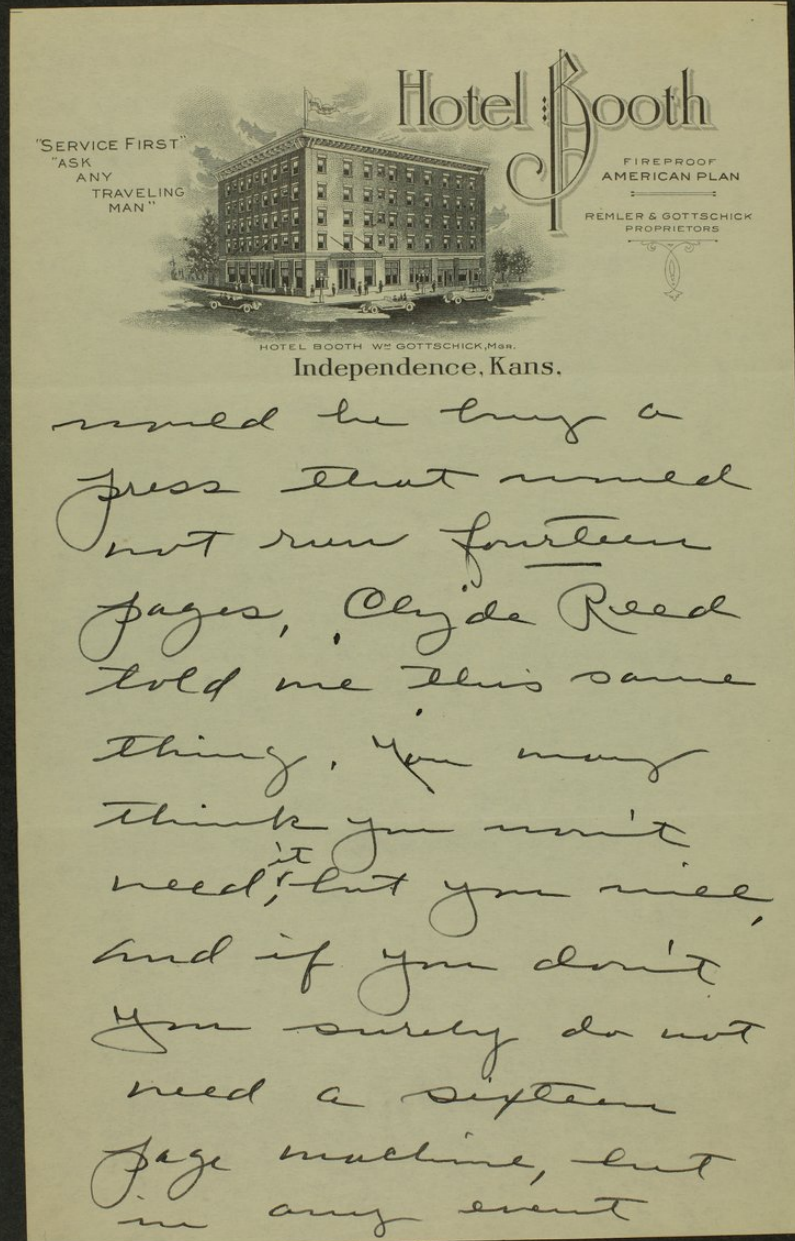 Hotel Booth
"SERVICE FIRST"
"ASK
ANY
TRAVELING
MAN"
FIREPROOF
AMERICAN PLAN
REMLER & GOTTSCHICK
PROPRIETORS
HOTEL BOOTH WM GOTTSCHICK, MGR.
Independence, Kans.
would he buy a
press that would
not run fourteen
pages, Clyde Reed
told me this same
thing. You may
think you won't
need it, but you will,
and if you don't
you surely do not
need a sixteen
page machine, but
in any event